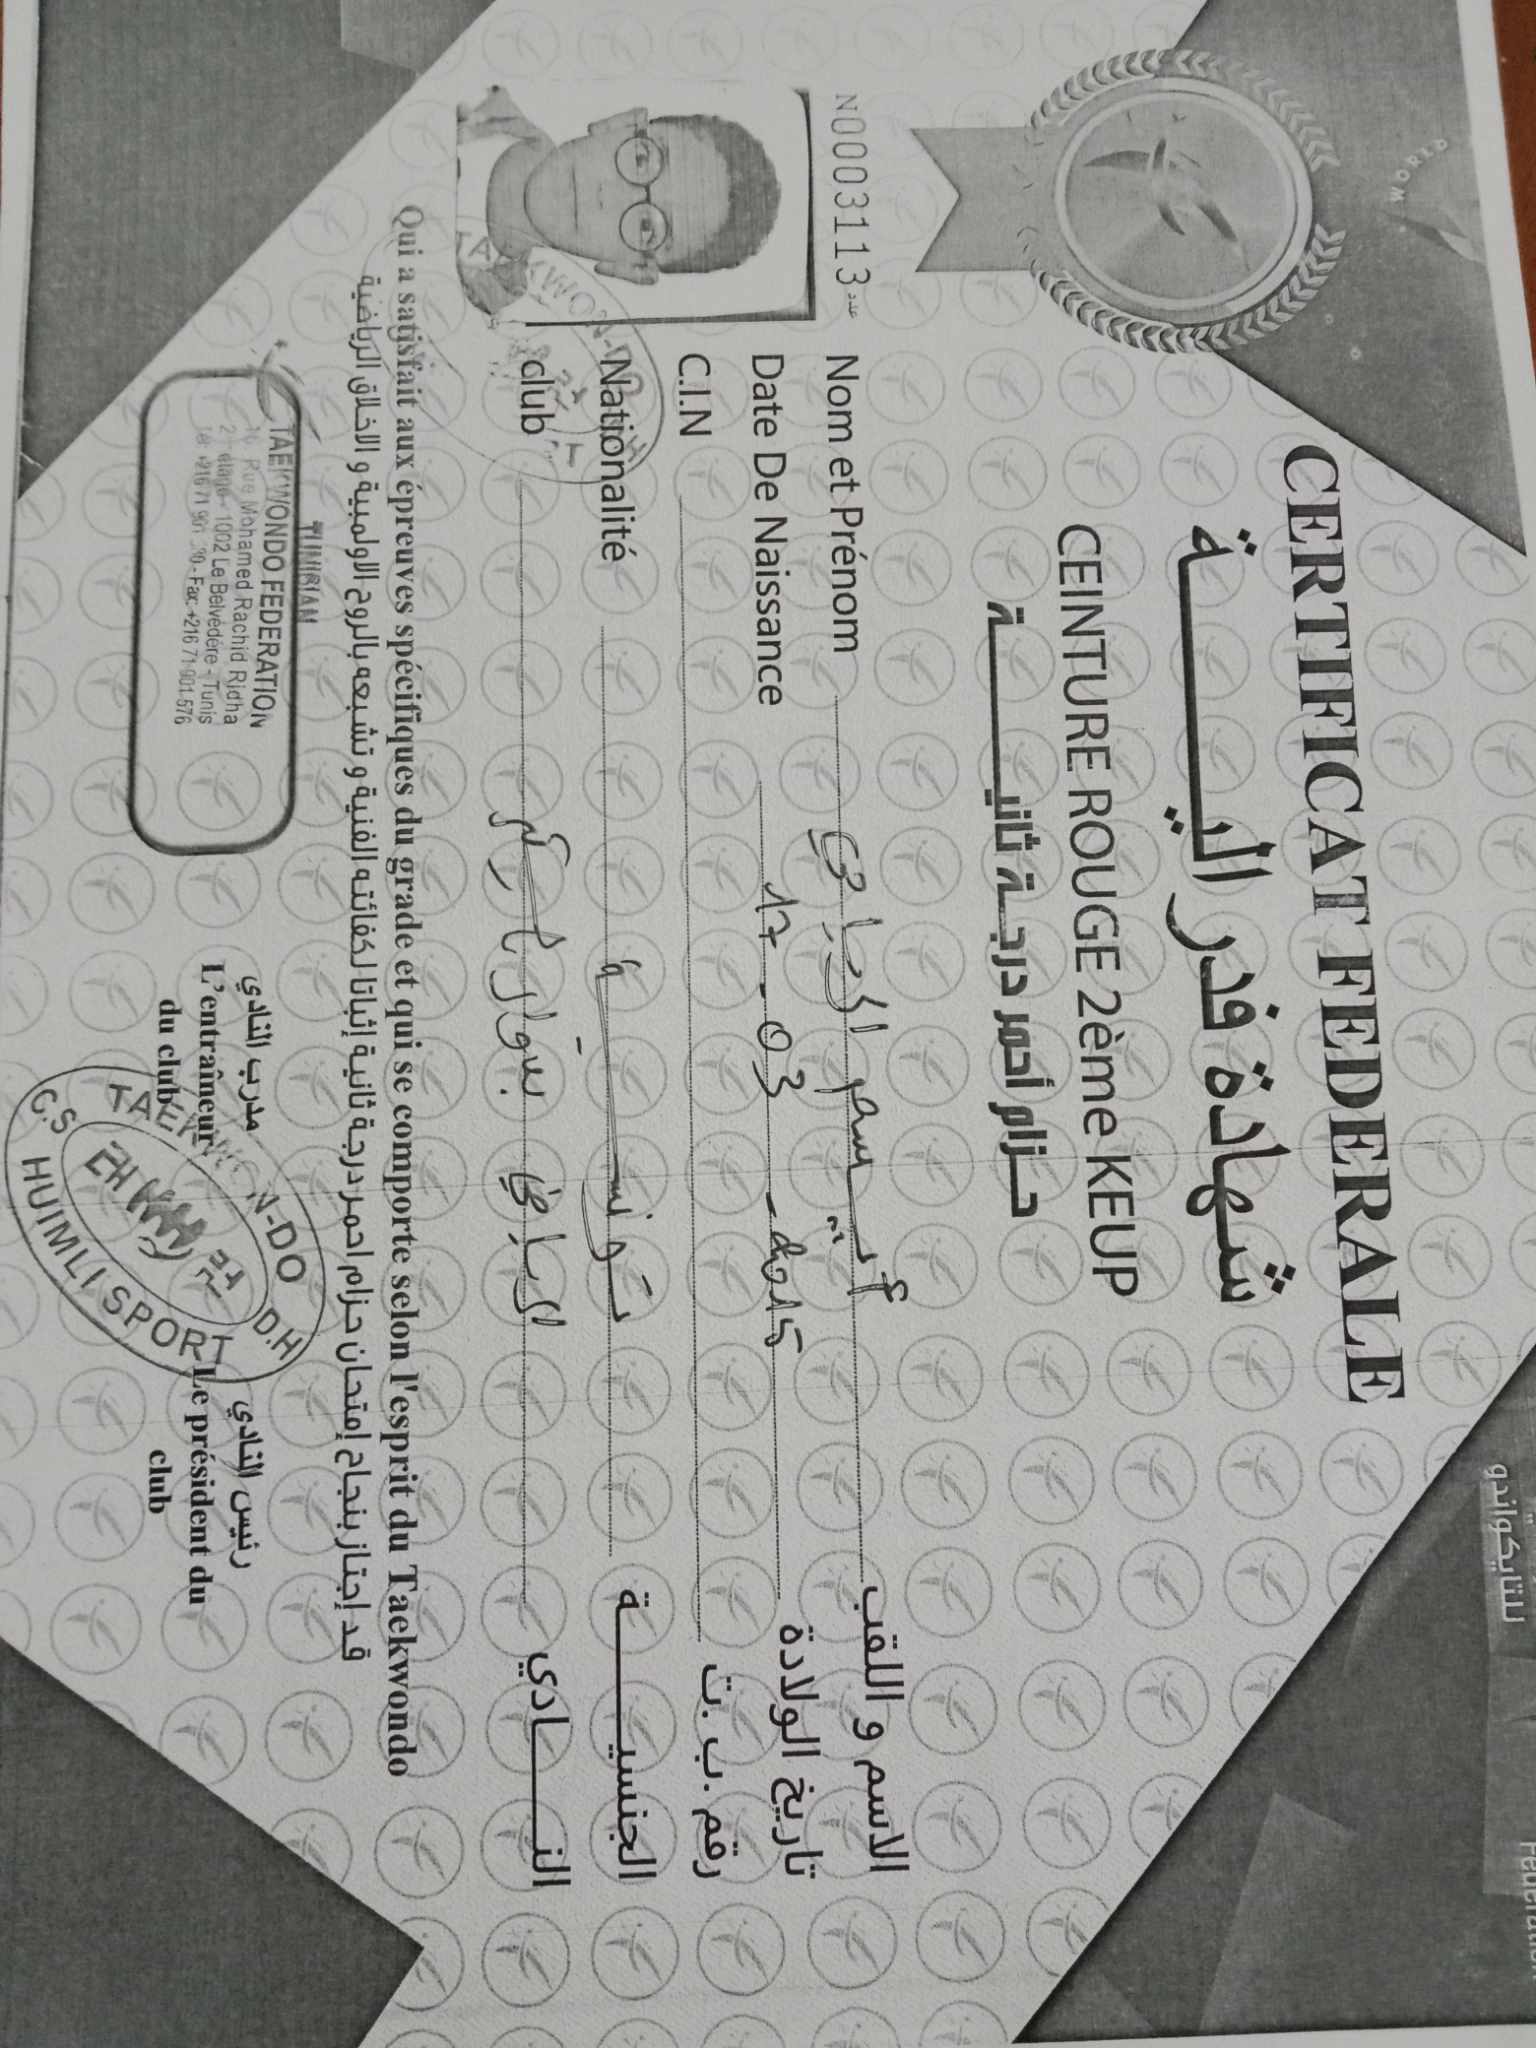 WORLD
للتايكواندو
CERTIFICAT FEDERALE
شهادة فدرالية
CEINTURE ROUGE 2ème KEUP
حزام أحمر درجة ثانية
N00003113 عدد
Nom et Prénom الاسم و اللقب
Date De Naissance 17-03-2015 تاريخ الولادة
C.I.N رقم ب.ت
Nationalité تونسية الجنسية
club الرياضي النادي
Qui a satisfait aux épreuves spécifiques du grade et qui se comporte selon l'esprit du Taekwondo
قد إجتاز بنجاح إمتحان حزام احمر درجة ثانية إثباتا لكفائته الفنية و تشبعه بالروح الاولمبية و الاخلاق الرياضية
TUNISIAN
TAEKWONDO FEDERATION
Rue Mohamed Rachid Ridha
1002 Le Belvédère - Tunis
Fax: +216 71 901 576
مدرب النادي
L'entraîneur
du club
رئيس النادي
Le président du
club
TAEKWON-DO
C.S HUIMLI SPORT D.H